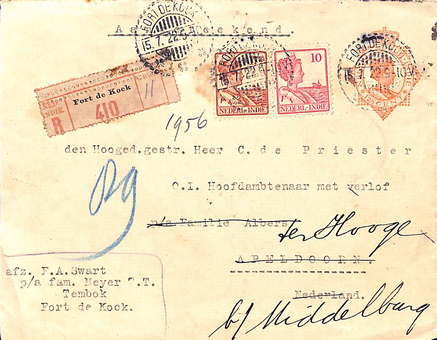 Aangetekend.
FORT DE KOCK
15.7.22.9-10V
10
NEDERL-INDIE
NEDERL-INDIE
INDIE
Fort de Kock
R 410 11
1956
den Hooged.gestr. Heer C. de Priester
O.I. Hoofdambtenaar met verlof
p/a Familie Albers
ter Hooge
APELDOORN
Nederland.
b/ Middelburg
afz. F.A.Swart
p/a fam. Meyer T.T.
Tembok
Fort de Kock.